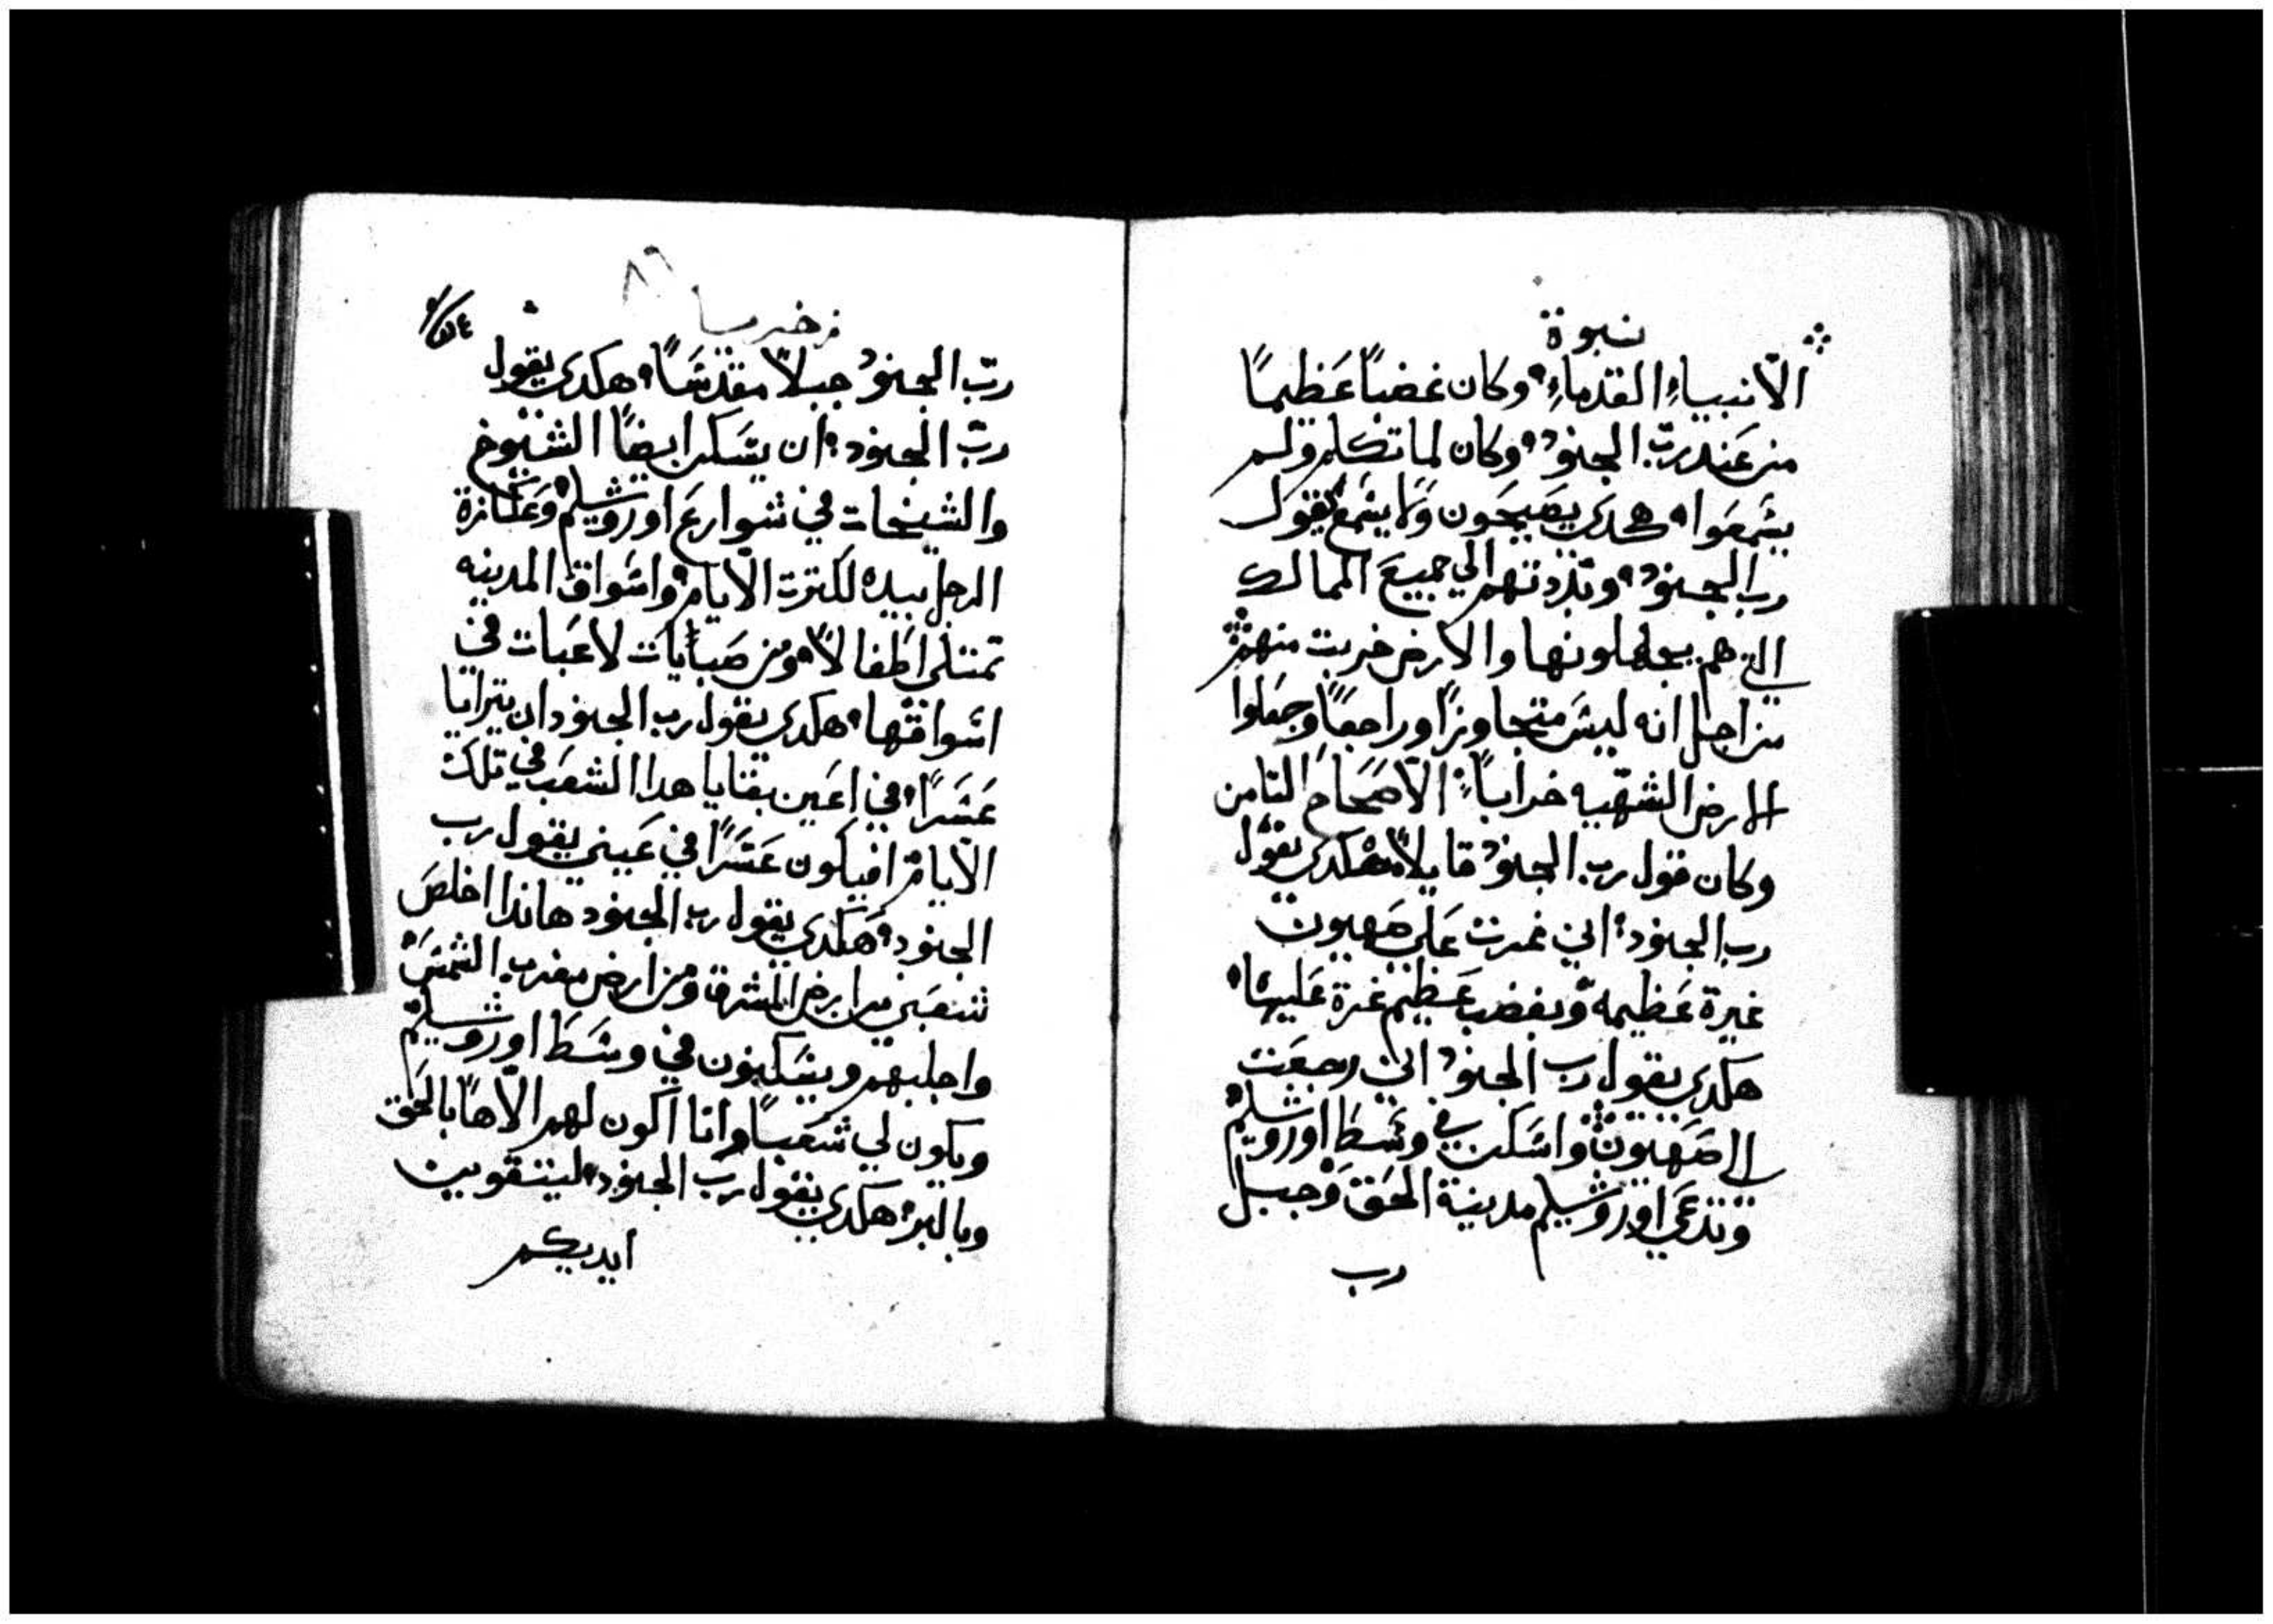 نبوة
الأنبياء القدماء، وكان غضباً عَظيماً
من عَند ربّ الجنود، وكان لما تكلم ولم
يسَمعَوا، هكدى يصَيحَون ولا يسَمع يقول
رب الجنود، وتبددتهم الي جميعَ الممالك
التي هم يجهلونها والارض خربت منهم
من اجل انه ليسَ متجاوزاً وراجعَاً وجعَلوا
الارض الشهيه خراباً، الأصَحاح التامن
وكان قول رب الجنود قايلاً هكدى يقول
رب الجنود، اني غرت عَلي صَهيون
غيرة عَظيمه وبغضب عَظيم غرة عَليها،
هكدى يقول رب الجنود اني رجعَت
الي صَهيون واسَكن في وسَط اوروشليم
وتدعَي اوروشليم مدينة الحَق وجبل
رب
٨٦
زخريا
ربّ الجنود جبلاً مقدسَاً، هكدى يقول
ربّ الجنود، ان يسَكن ايضاً الشيوخ
والشيخات في شوارعَ اوروشليم وعَكازة
الرجل بيده لكترت الأيام، واسَواق المدينه
تمتلي اطفالاً، ومن صَبايات لاعَبات في
اسَواقها، هكدى يقول رب الجنود ان يترايا
عَسَراً، في اعَين بقايا هدا الشعَب في تلك
الأيام افيكون عَسَراً في عَيني يقول رب
الجنود، هَكدى يقول رب الجنود هاندا اخلصَ
شعَبي من ارض المشرق ومن ارض مغرب الشمسَ
واجلبهم ويسَكنون في وسَط اوروشليم
ويكون لي شعَباً وانا اكون لهم الاهاً بالحَق
وبالبر، هكدى يقول رب الجنود، ليتقوين
ايديكم